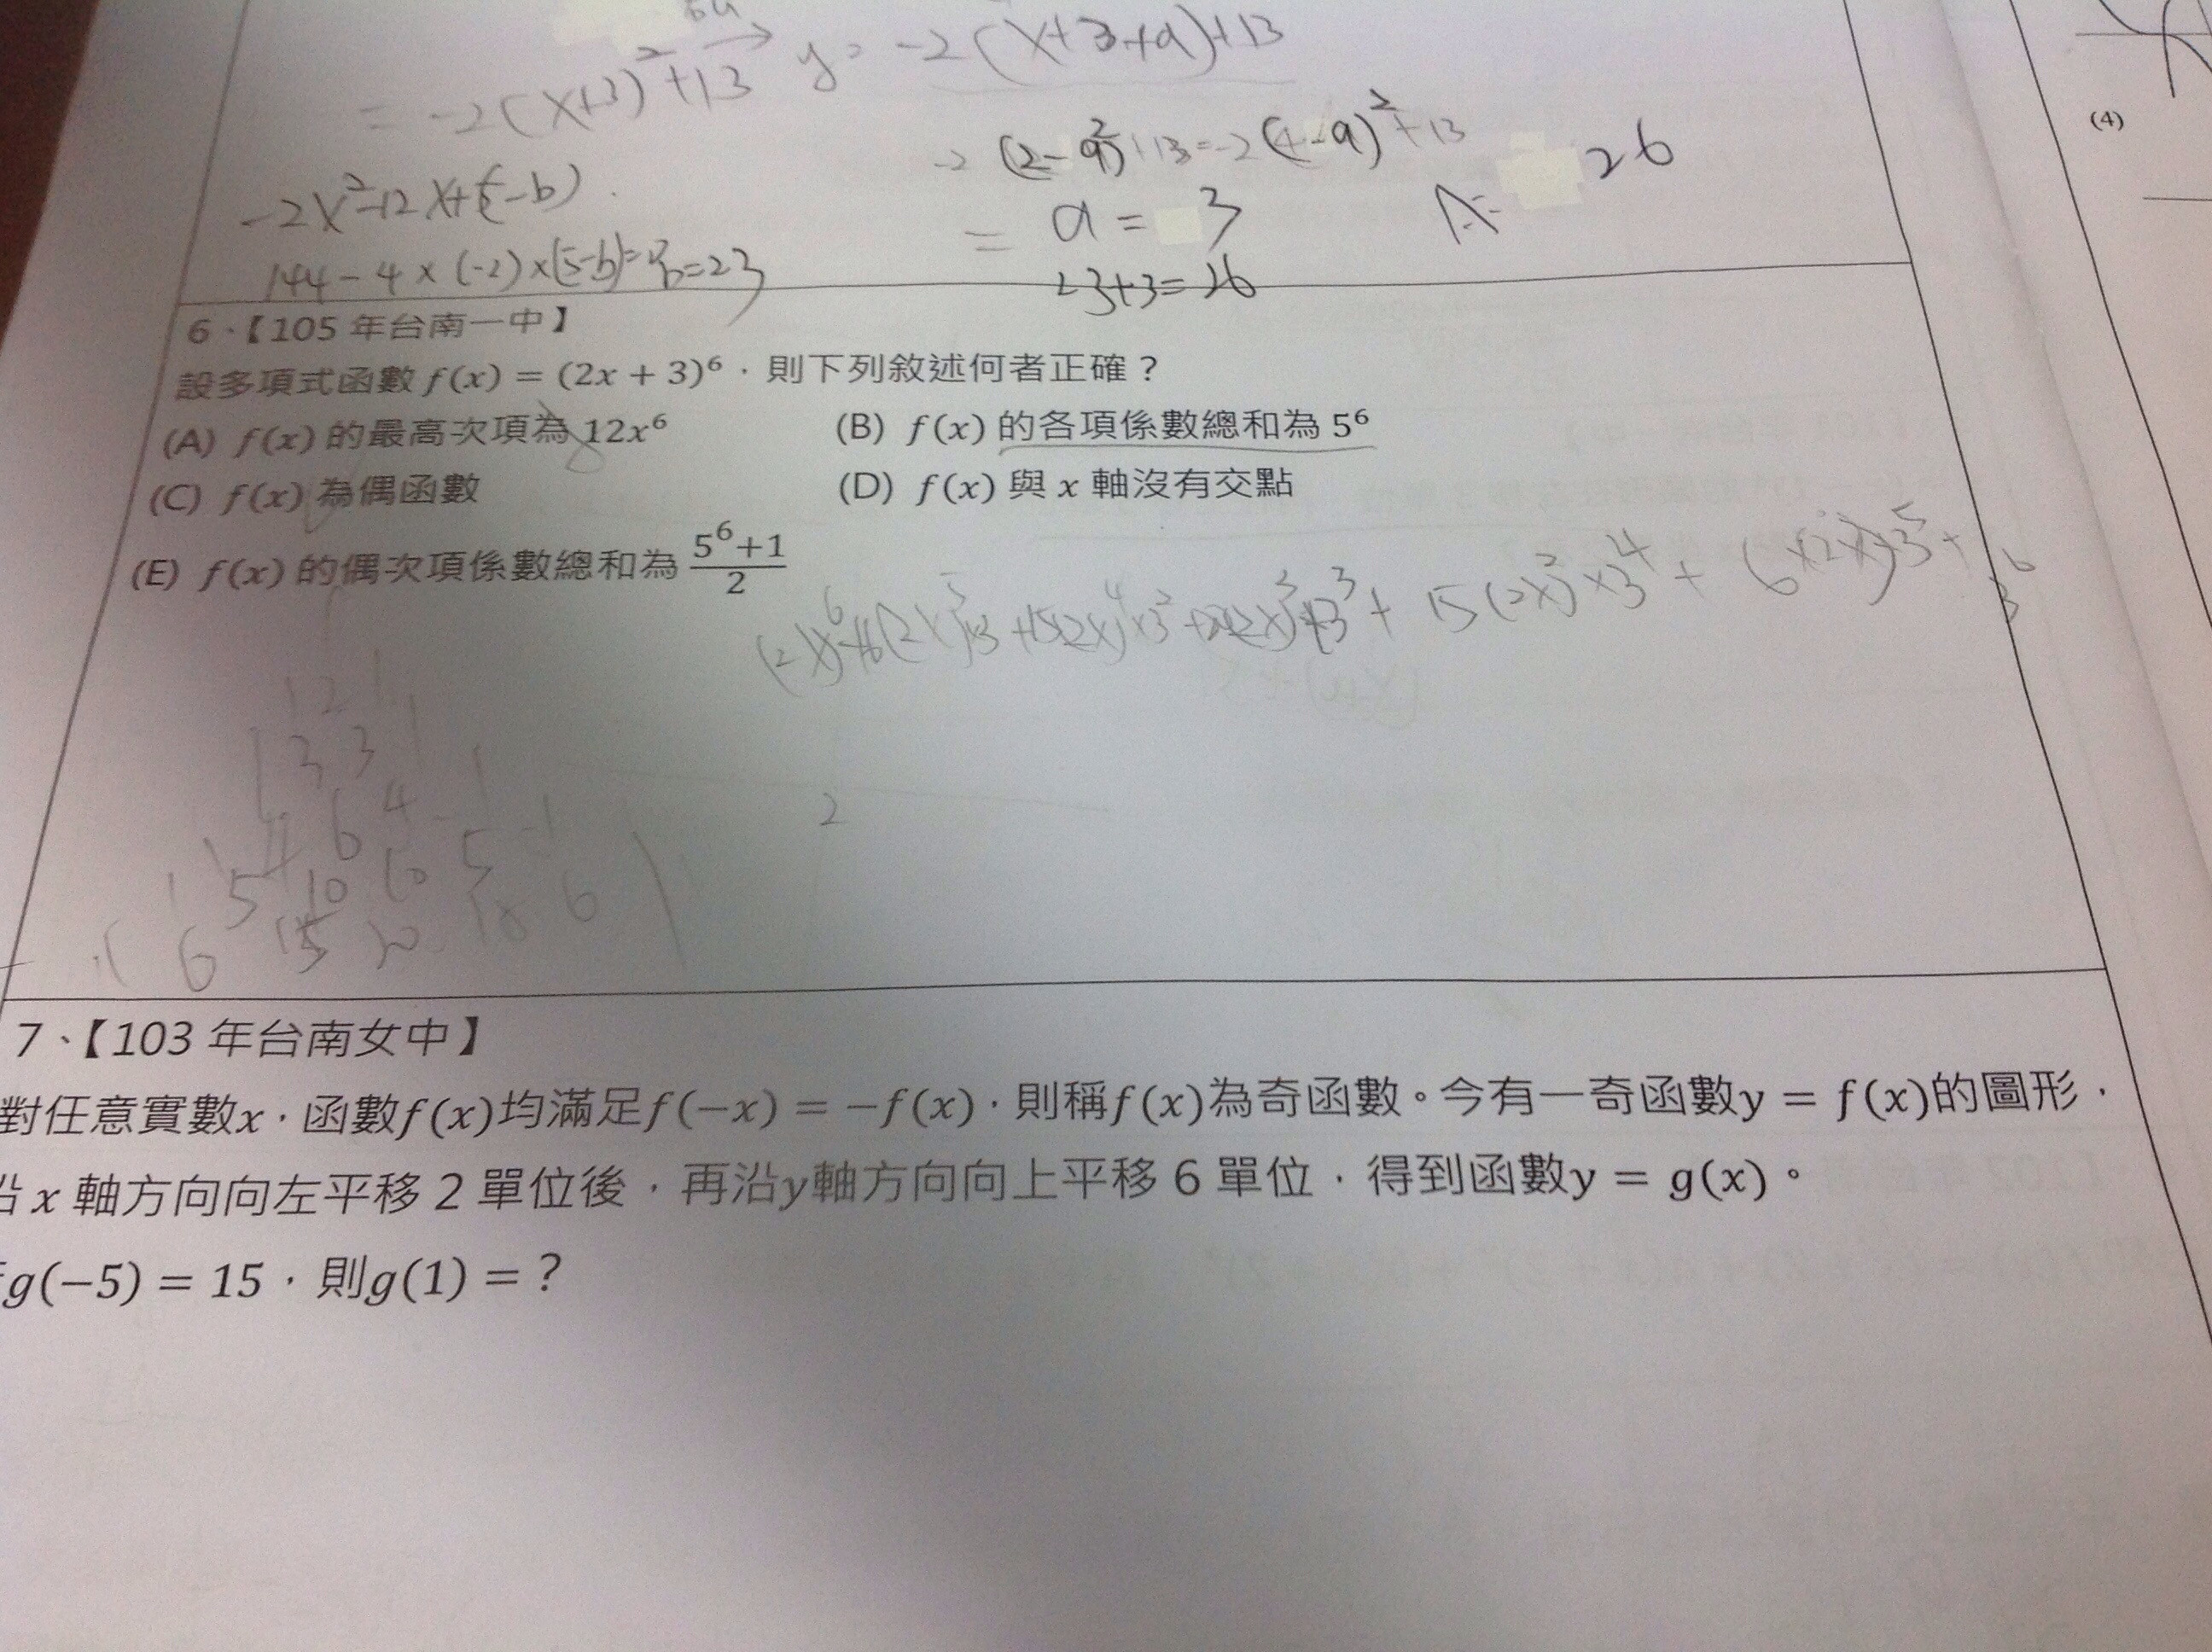 = -2(x+3)²+13 → y = -2(x+3+a)+13
-2(2-a)²+13=-2(4-a)²+13
-2x²-12x+(5-b)
= a = 3
A= 26
144-4×(-2)×(5-b)= b=23
23+3=26
(4)
6、【105 年台南一中】
設多項式函數 f(x) = (2x + 3)⁶，則下列敘述何者正確？
(A) f(x) 的最高次項為 12x⁶ (B) f(x) 的各項係數總和為 5⁶
(C) f(x) 為偶函數 (D) f(x) 與 x 軸沒有交點
(E) f(x) 的偶次項係數總和為 (5⁶+1)/2
15(2x)²×3⁴ + 6×(2x)×3⁵ + 3⁶
1 2 1
1 3 3 1
1 4 6 4 1
2
1 5 10 10 5 1
1 6 15 20 15 6 1
7、【103 年台南女中】
對任意實數x，函數f(x)均滿足f(−x) = −f(x)，則稱f(x)為奇函數。今有一奇函數y = f(x)的圖形，
沿 x 軸方向向左平移 2 單位後，再沿y軸方向向上平移 6 單位，得到函數y = g(x)。
g(−5) = 15，則g(1) = ?